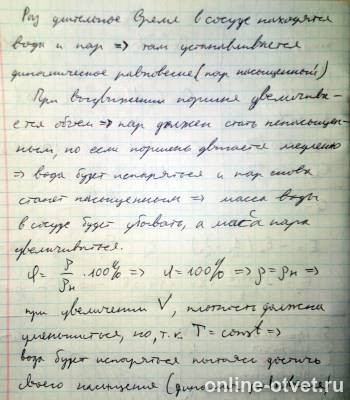 Раз длительное время в сосуде находятся
вода и пар => там устанавливается
динамическое равновесие (пар насыщенный)
При выдвижении поршня увеличива-
ется объем => пар должен стать ненасыщен-
ным, но если поршень двигается медленно
=> вода будет испаряться и пар снова
станет насыщенным => масса воды
в сосуде будет убывать, а масса пара
увеличиваться.
φ = ρ/ρн · 100% => φ = 100% => ρ = ρн =>
при увеличении V, плотность должна
уменьшиться, но, т.к. T = const =>
вода будет испаряться пытаясь достичь
своего насыщения
online-otvet.ru